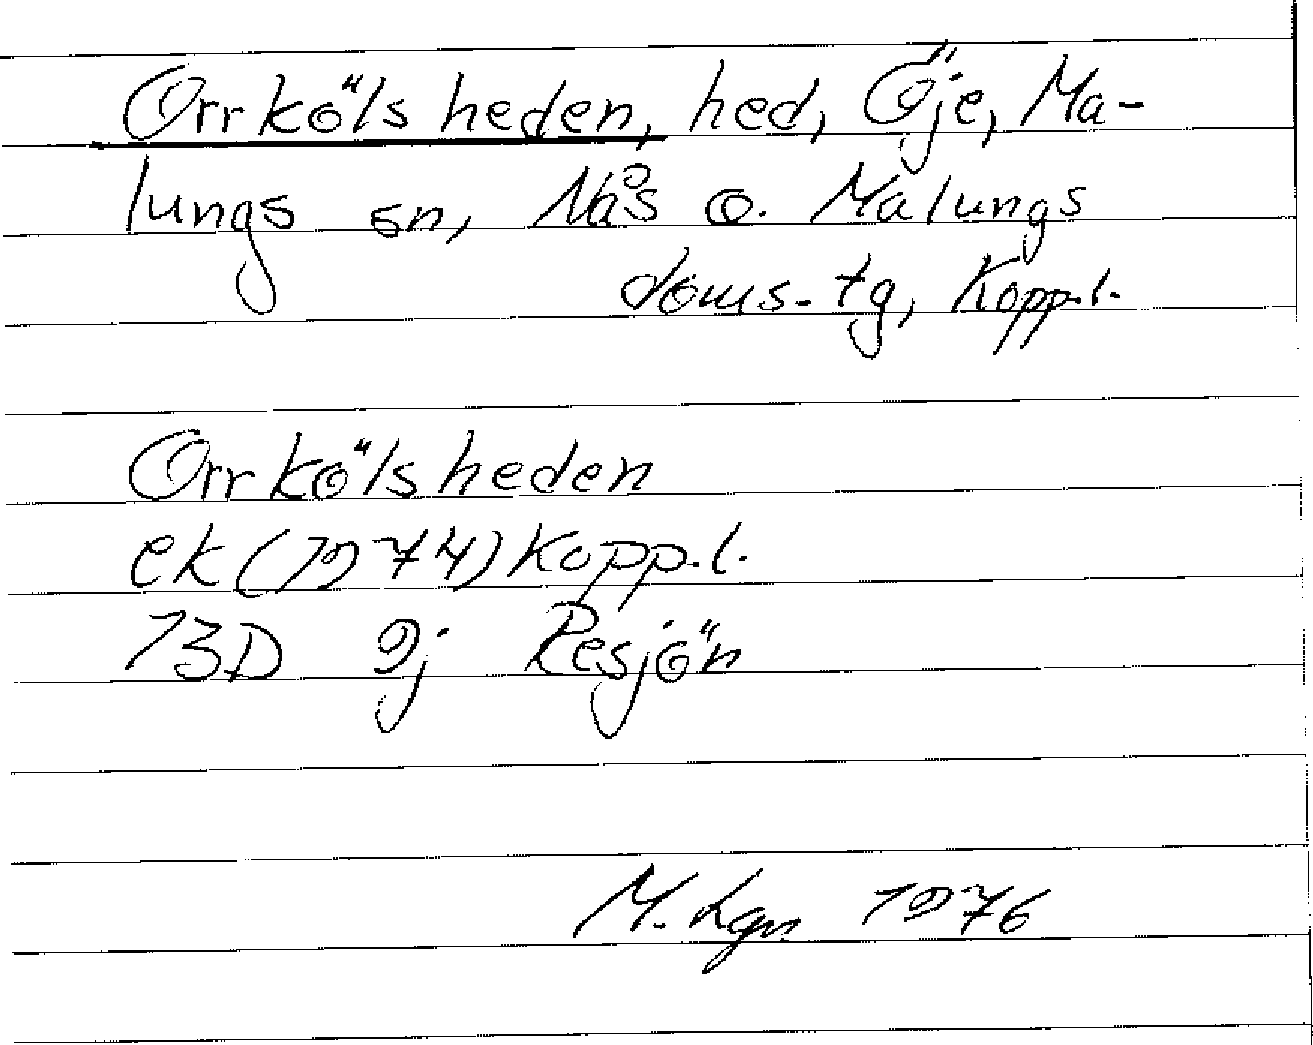 Orrkölsheden, hed, Öje, Ma-
lungs sn, Nås o. Malungs
doms. tg, Kopp.l.
Orrkölsheden
ek (1974) Kopp.l.
13D 9j Resjön
M. Lgn. 1976